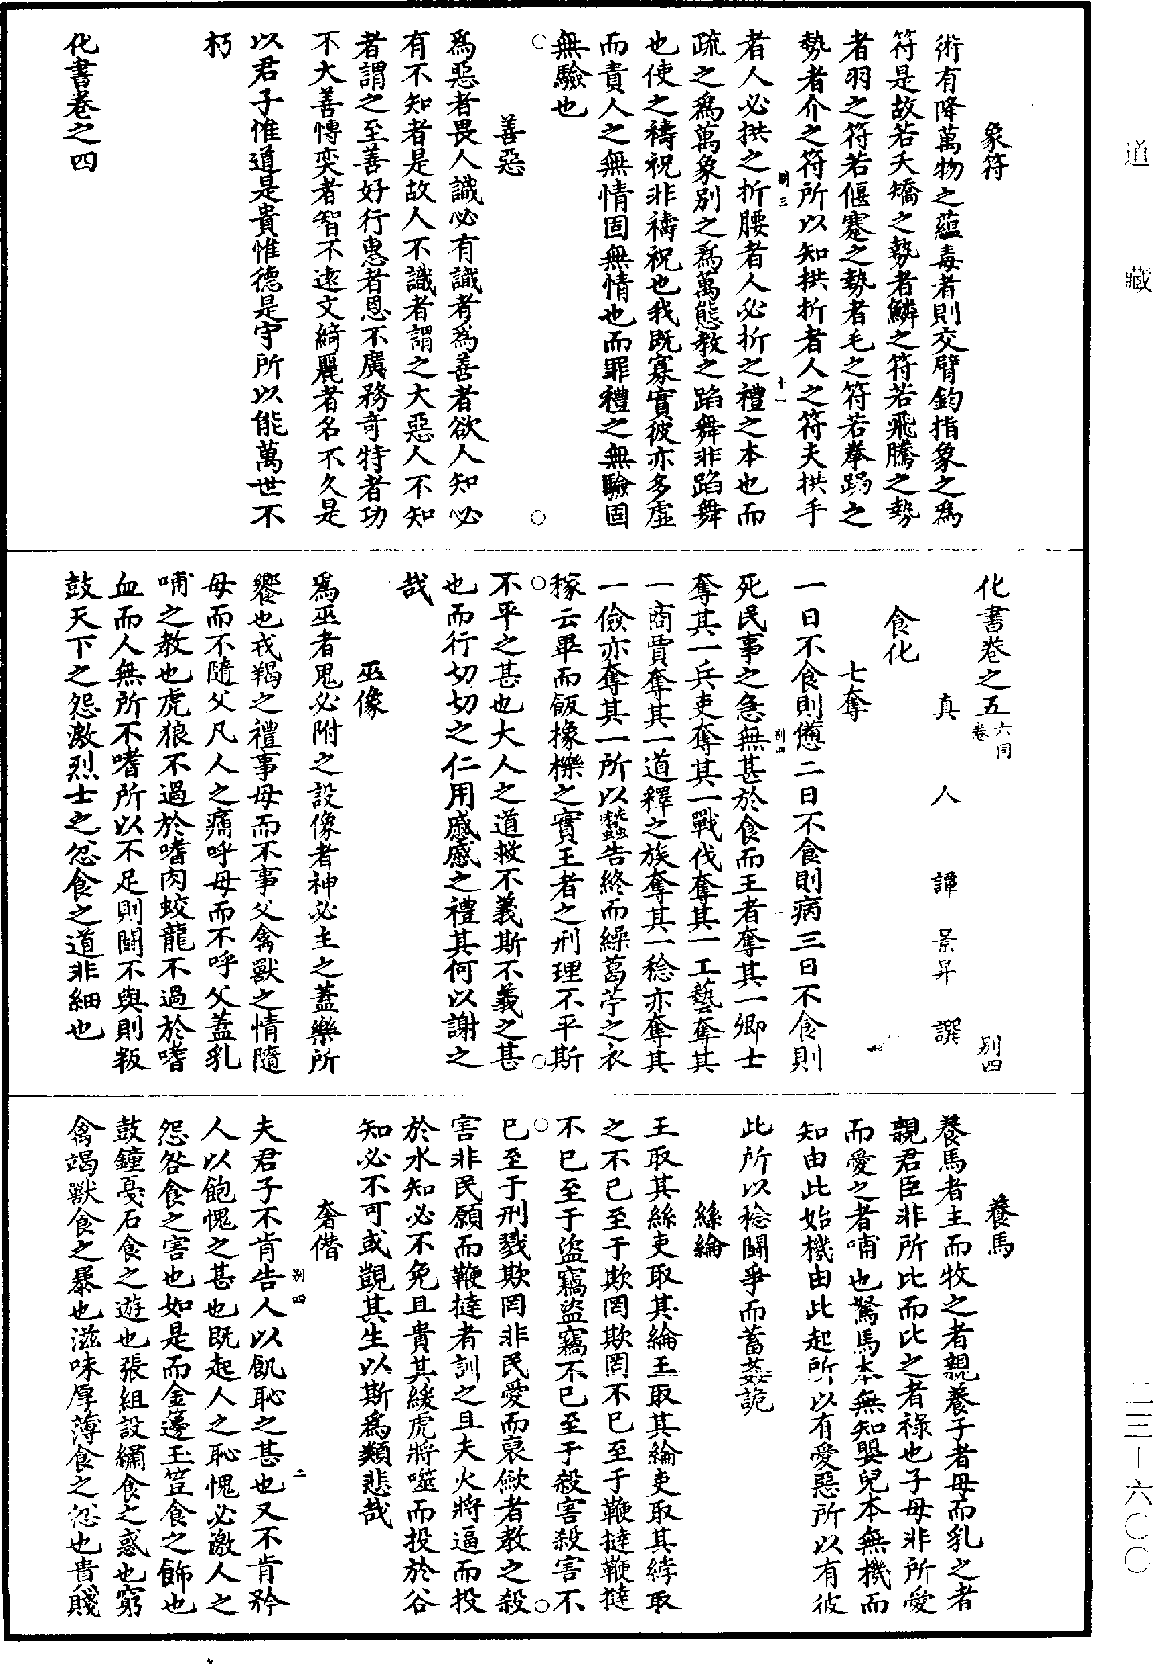 道藏
象符
術有降萬物之蘊毒者則交臂鈞指象之爲
符是故若夭矯之勢者鱗之符若飛騰之勢
者羽之符若偃蹇之勢者毛之符若拳跼之
勢者介之符所以知拱折者人之符夫拱手
別三 十一
者人必拱之折腰者人必折之禮之本也而
疏之爲萬象別之爲萬態教之蹈舞非蹈舞
也使之禱祝非禱祝也我既寡實彼亦多虛
而責人之無情固無情也而罪禮之無驗固
無驗也
善惡
爲惡者畏人識必有識者爲善者欲人知必
有不知者是故人不識者謂之大惡人不知
者謂之至善好行惠者恩不廣務奇特者功
不大善博奕者智不遠文綺麗者名不久是
以君子惟道是貴惟德是守所以能萬世不
朽
化書卷之四
化書卷之五 六同卷 別四
真人譚景昇撰
食化
七奪
一日不食則憊二日不食則病三日不食則
別四 一
死民事之急無甚於食而王者奪其一卿士
奪其一兵吏奪其一戰伐奪其一工藝奪其
一商賈奪其一道釋之族奪其一稔亦奪其
一儉亦奪其一所以蠶告終而繰葛苧之衣
稼云畢而飯橡櫟之實王者之刑理不平斯
不平之甚也大人之道救不義斯不義之甚
也而行切切之仁用慼慼之禮其何以謝之
哉
巫像
爲巫者鬼必附之設像者神必主之蓋樂所
饗也戎羯之禮事母而不事父禽獸之情隨
母而不隨父凡人之痛呼母而不呼父蓋乳
哺之教也虎狼不過於嗜肉蛟龍不過於嗜
血而人無所不嗜所以不足則鬪不與則叛
鼓天下之怨激烈士之忿食之道非細也
養馬
養馬者主而牧之者親養子者母而乳之者
親君臣非所比而比之者祿也子母非所愛
而愛之者哺也駑馬本無知嬰兒本無機而
知由此始機由此起所以有愛惡所以有彼
此所以稔鬪爭而蓄姦詭
絲綸
王取其絲吏取其綸王取其綸吏取其綍取
之不已至于欺罔欺罔不已至于鞭撻鞭撻
不已至于盜竊盜竊不已至于殺害殺害不
已至于刑戮欺罔非民愛而裒歛者教之殺
害非民願而鞭撻者訓之且夫火將逼而投
於水知必不免且貴其緩虎將噬而投於谷
知必不可或覬其生以斯爲類悲哉
奢僭
夫君子不肯告人以飢恥之甚也又不肯矜
別四 二
人以飽愧之甚也既起人之恥愧必激人之
怨咎食之害也如是而金籩玉豆食之飾也
鼓鐘戞石食之遊也張組設繡食之惑也窮
禽竭獸食之暴也滋味厚薄食之忿也貴賤
二三—六〇〇